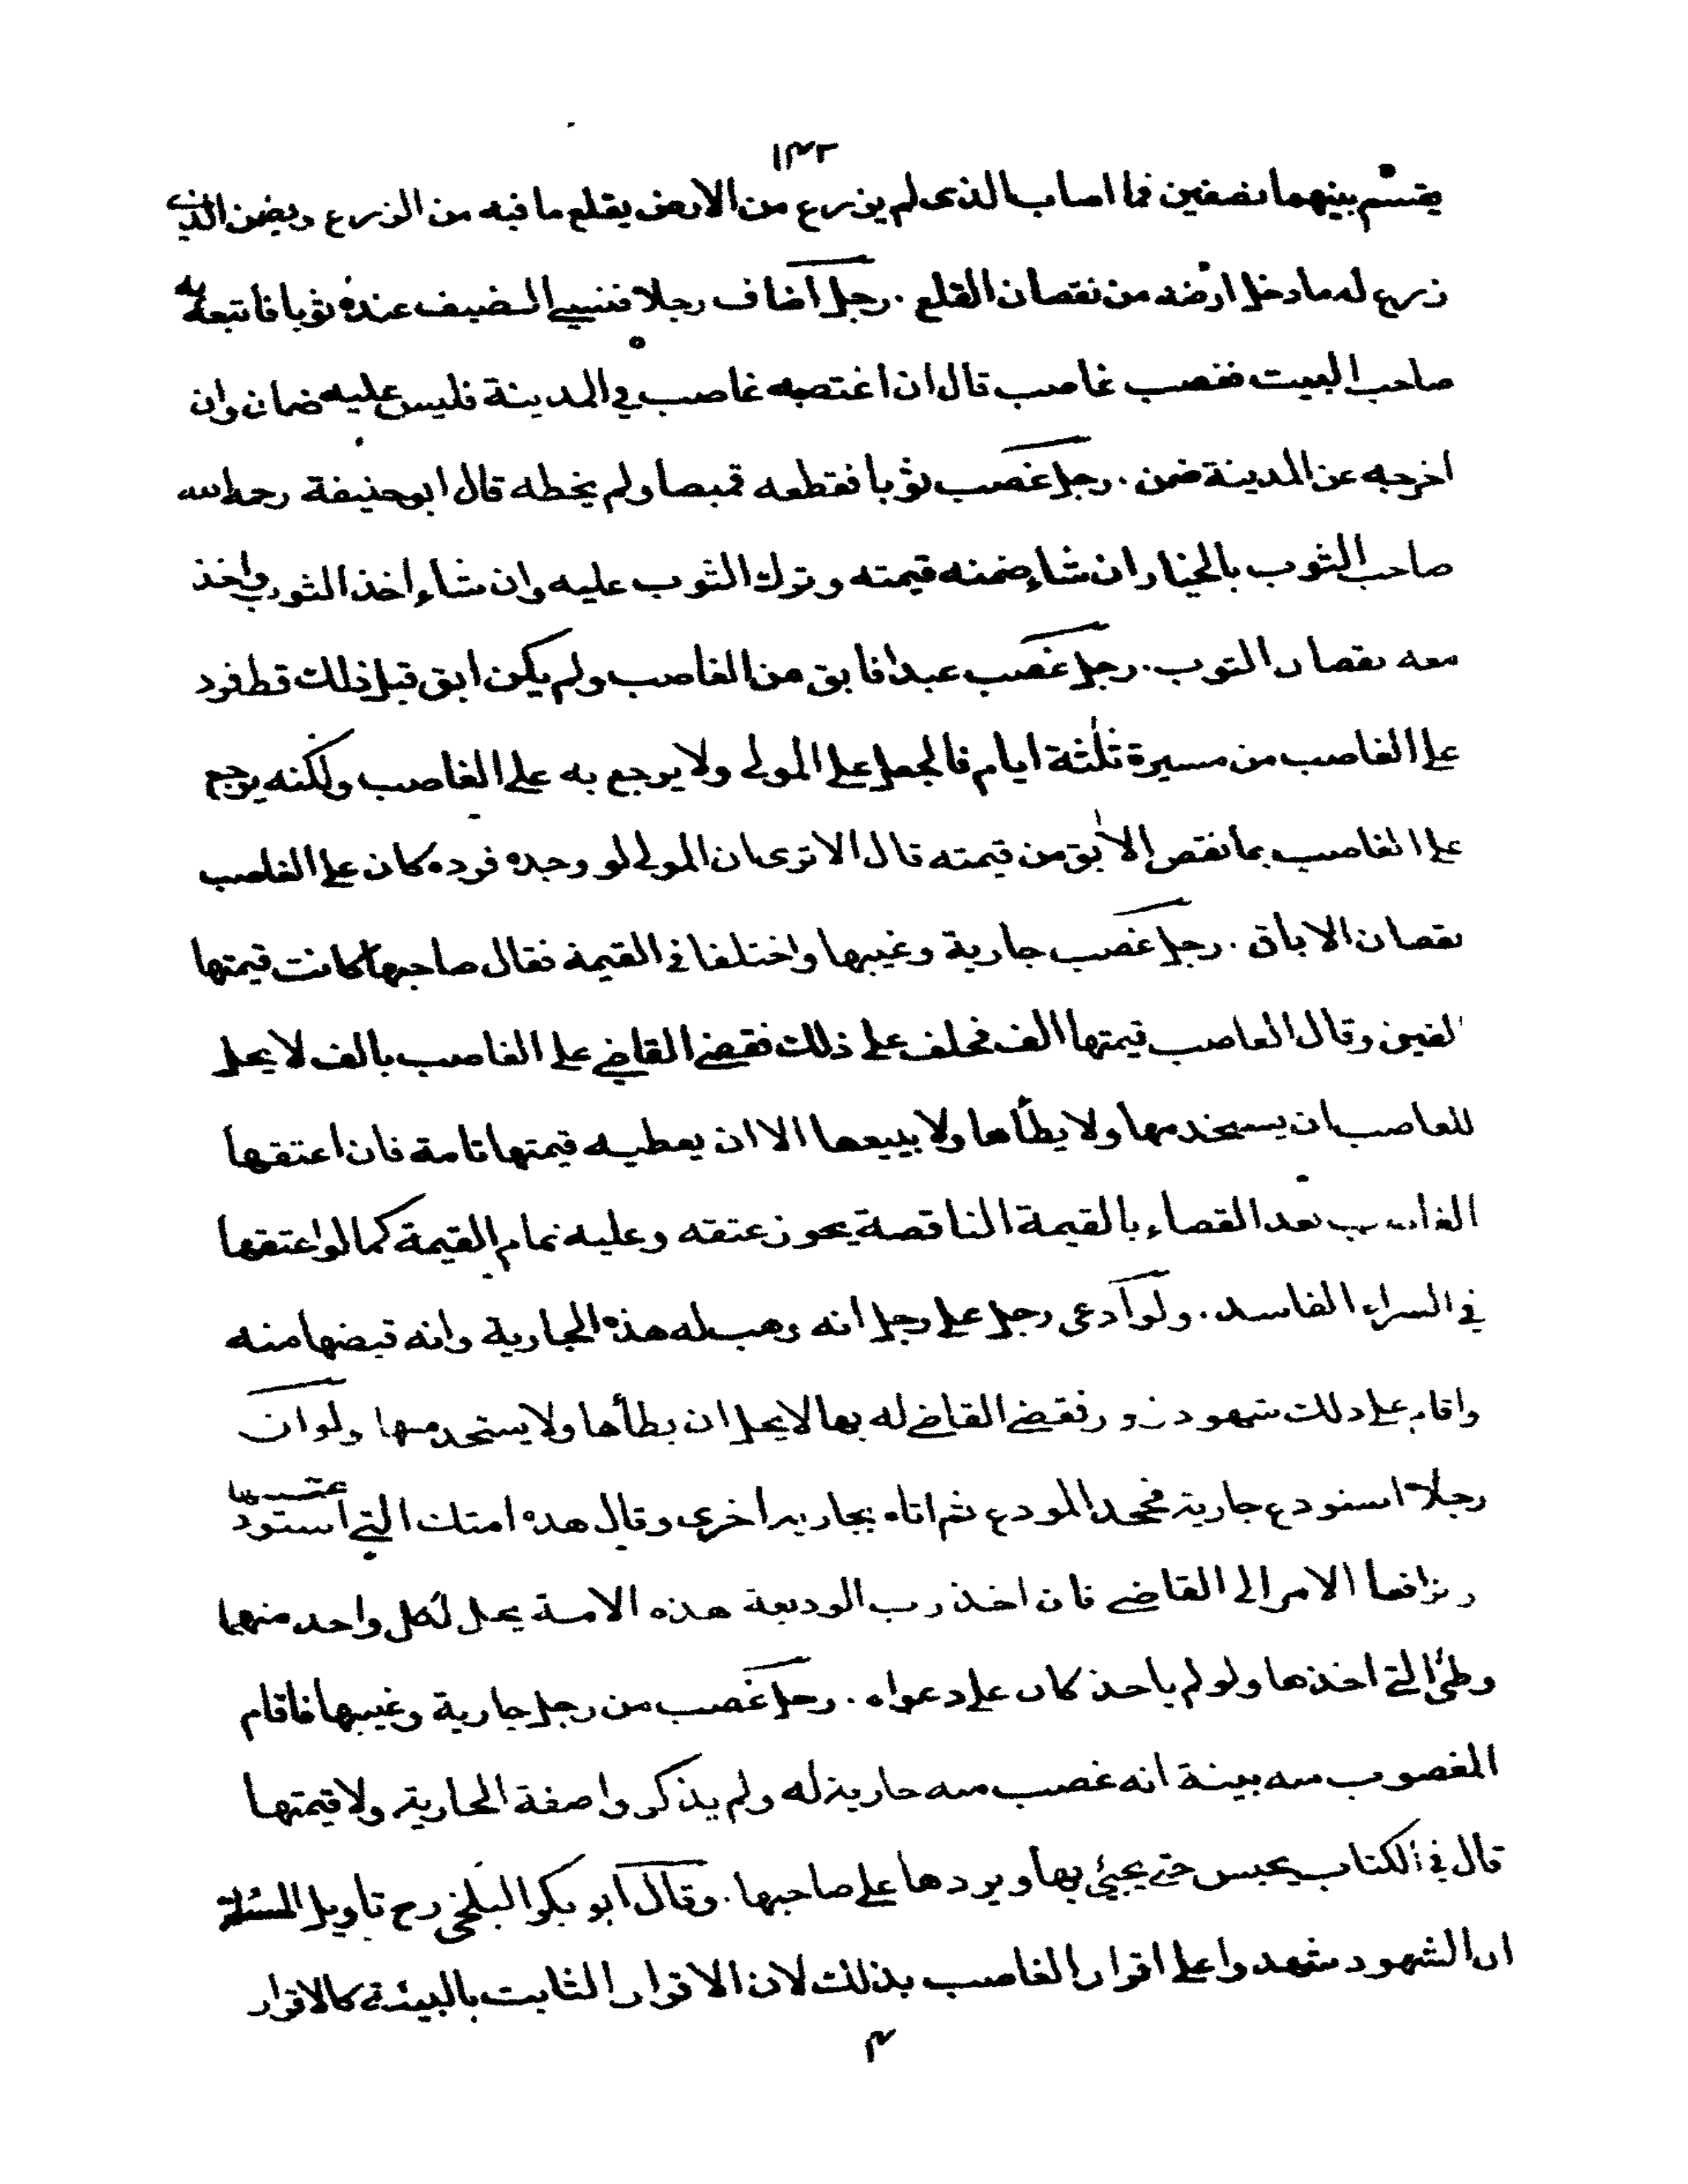 ١٤٢
يقسم بينهما نصفين فما اصاب الذى لم يزرع من الارض يقلع ما فيه من الزرع ويضمن الذى
زرع له ما دخل ارضه من نقصان القلع . رجل اضاف رجلا فنسى الضيف عنده ثوبا فاتبعه به
صاحب البيت فغصب غاصب قال ان اغتصبه غاصب في المدينة فليس عليه ضمان وان
اخرجه عن المدينة ضمن . رجل غصب ثوبا فقطعه قميصا ولم يخطه قال ابوحنيفة رحمه الله
صاحب الثوب بالخيار ان شاء ضمنه قيمته وترك الثوب عليه وان شاء اخذ الثوب واخذ
معه نقصان الثوب . رجل غصب عبدا فابق من الغاصب ولم يكن ابق قبل ذلك قط فرد
على الغاصب من مسيرة ثلثة ايام فالجعل على المولى ولا يرجع به على الغاصب ولكنه يرجع
على الغاصب بما نقص الابق من قيمته قال الا ترى ان المولى لو وجده فرده كان على الغاصب
نقصان الاباق . رجل غصب جارية وغيبها واختلفا في القيمة فقال صاحبها كانت قيمتها
الفين وقال الغاصب قيمتها الف فحلف على ذلك فقضى القاضي على الغاصب بالف لا يحل
للغاصب ان يستخدمها ولا يطأها ولا يبيعها الا ان يعطيه قيمتها تامة فان اعتقها
الغاصب بعد القضاء بالقيمة الناقصة يجوز عتقه وعليه تمام القيمة كما لو اعتقها
في الشراء الفاسد . ولو ادعى رجل على رجل انه وهب له هذه الجارية وانه قبضها منه
واقام على ذلك شهود زور فقضى القاضى له بها لا يحل ان يطأها ولا يستخدمها ولو ان
رجلا استودع جارية فجحد المودع ثم اتاه بجارية اخرى وقال هذه امتك التى استودعتنيها
وترافعا الامر الى القاضى فان اخذ رب الوديعة هذه الامة يحل لكل واحد منهما
وطئ التى اخذها ولو لم ياخذ كان على دعواه . رجل غصب من رجل جارية وغيبها فاقام
المغصوب منه بينة انه غصب منه جارية له ولم يذكروا صفة الجارية ولا قيمتها
قال في الكتاب يحبس حتى يجيئ بها ويردها على صاحبها . وقال ابو بكر البلخى رح تاويل المسئلة
ان الشهود شهدوا على اقرار الغاصب بذلك لان الاقرار الثابت بالبينة كالاقرار
٤